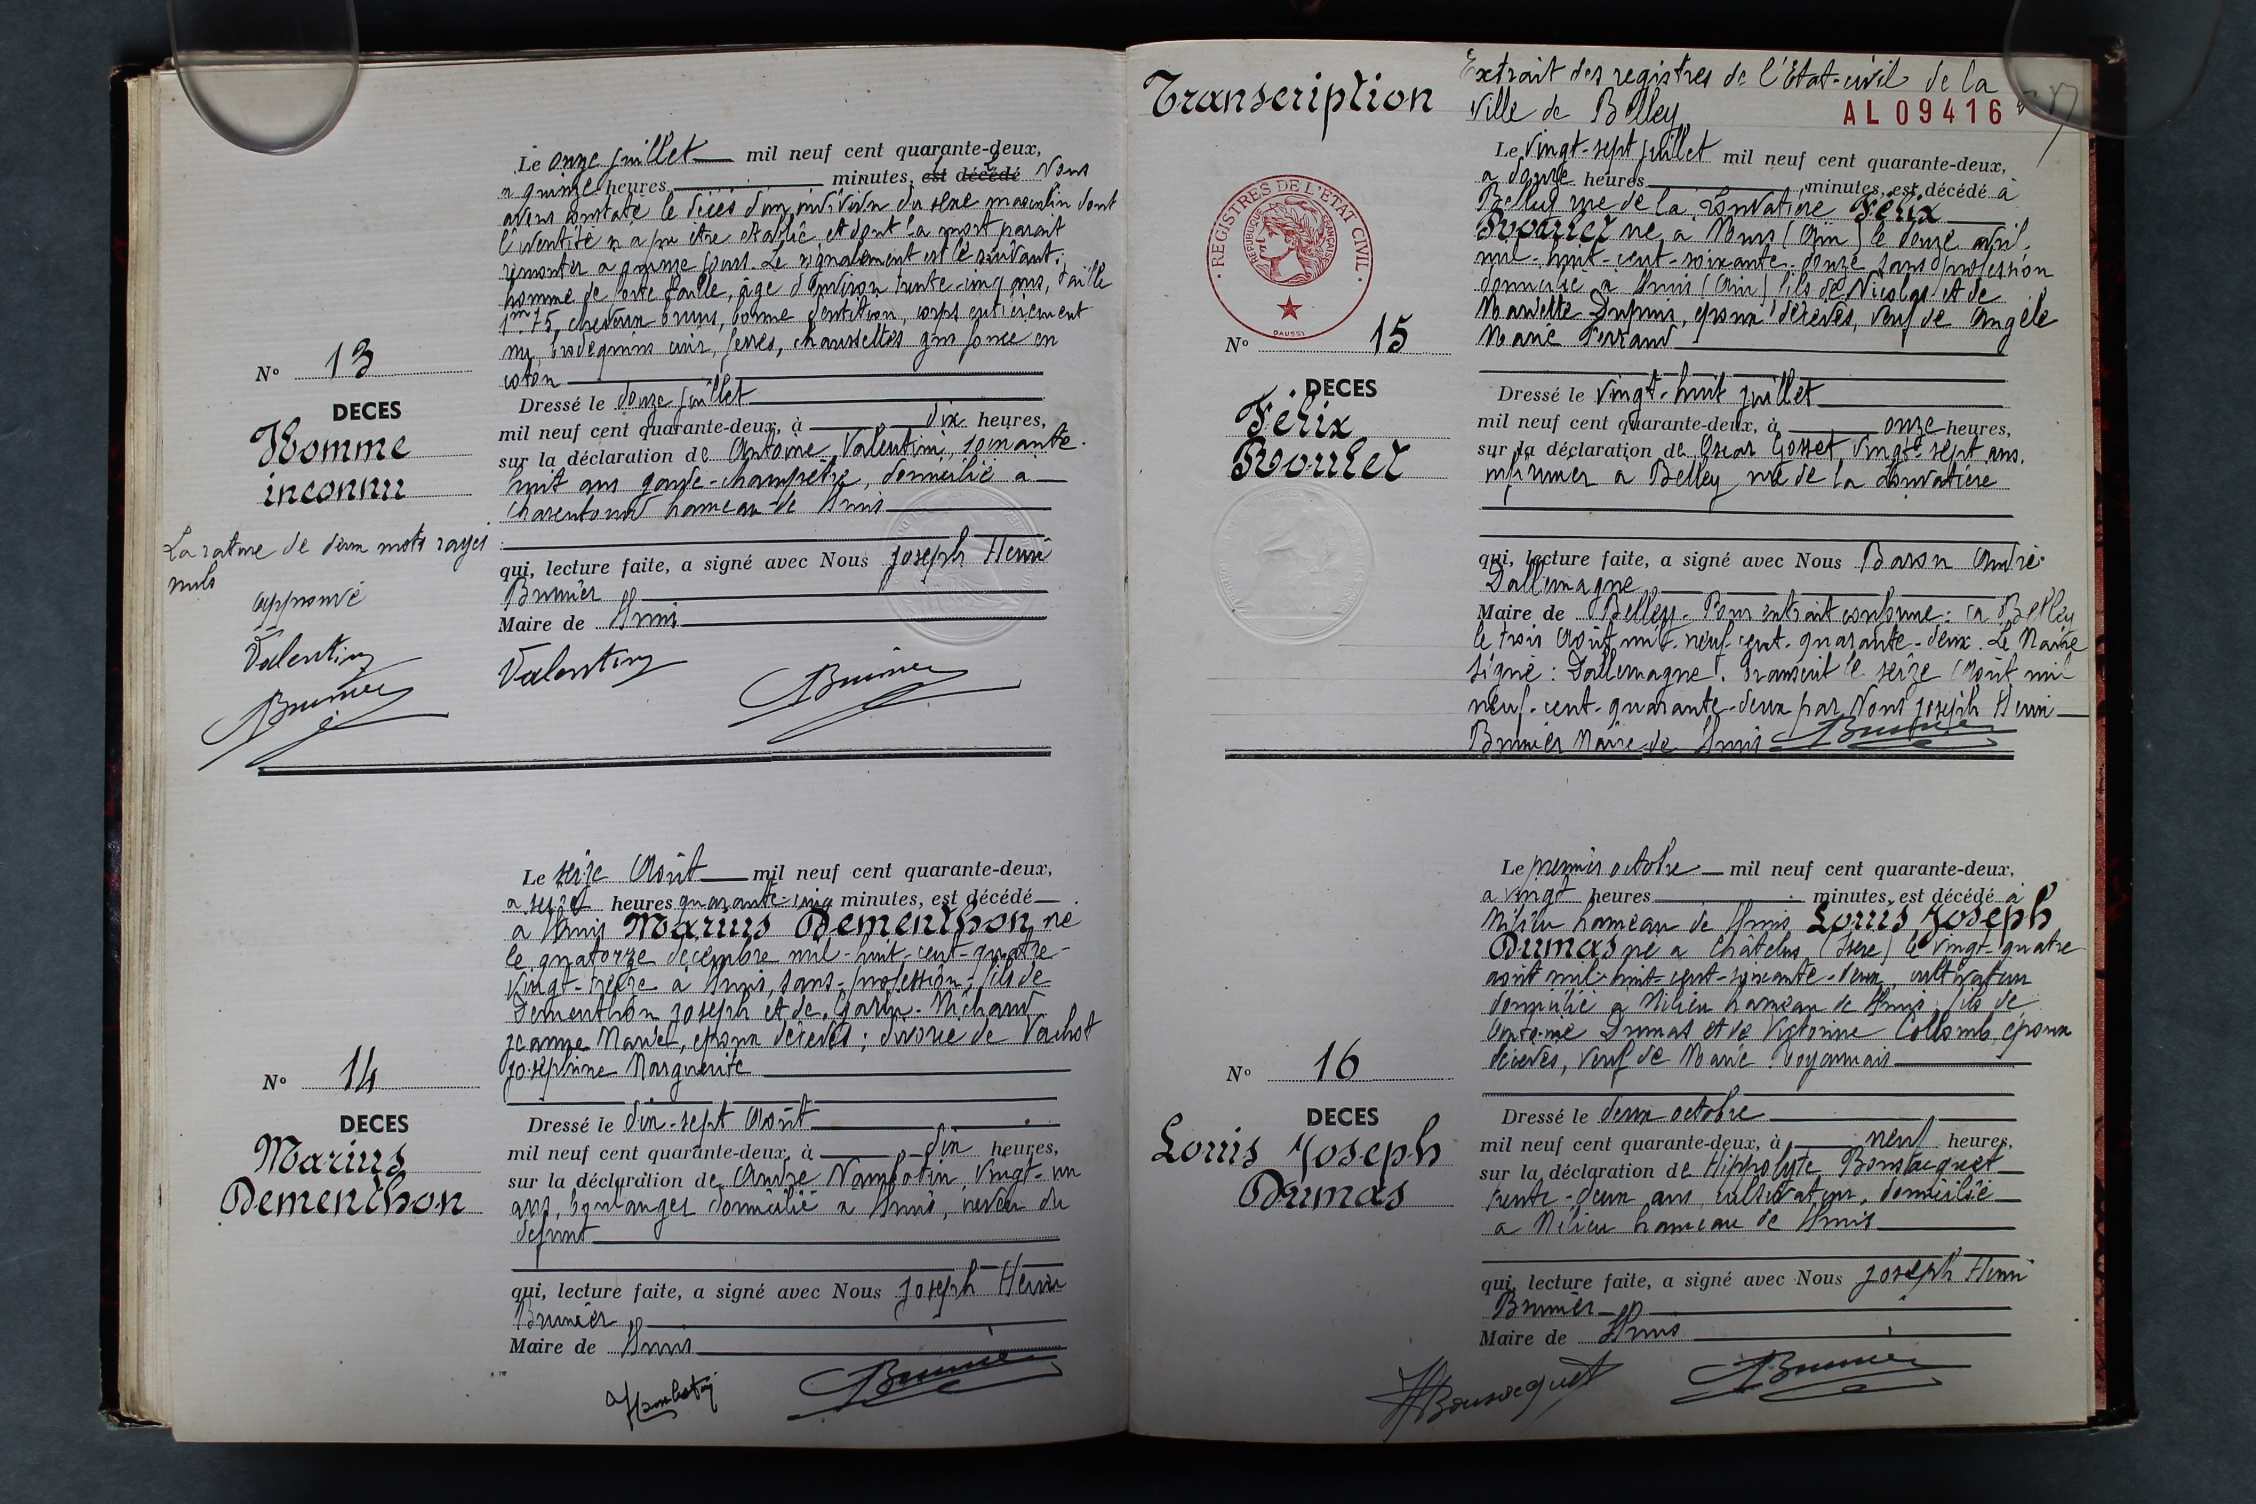 Le onze juillet mil neuf cent quarante-deux,
a quinze heures minutes, est décédé Nous
avons constaté le décès d'un individu du sexe masculin dont
l'identité n'a pu être établie et dont la mort parait
remonter a quinze jours. Le signalement est le suivant:
homme de forte taille, age d'environ trente-cinq ans, taille
1m 75, cheveux bruns, bonne dentition, corps entièrement
nu, brodequins cuir, ferrés, chaussettes gris foncé en
coton
N° 13
DECES
Homme
inconnu
La rature de deux mots rayés
nuls
approuvé
Valentin
Brunier
Dressé le douze juillet
mil neuf cent quarante-deux, à dix heures,
sur la déclaration de Antoine Valentin, soixante-
huit ans garde-champêtre, domicilié a
hameau de
qui, lecture faite, a signé avec Nous Joseph Henri
Brunier
Maire de
Valentin Brunier
Le seize Août mil neuf cent quarante-deux,
a seize heures quarante-cinq minutes, est décédé
a Marius Dementhon né
le quatorze décembre mil-huit-cent-quatre-
vingt-treize à sans profession; fils de
Dementhon Joseph et de Michaud
Jeanne Marie, époux décédés; divorcé de Vachot
Joséphine Marguerite
N° 14
DECES
Marius
Dementhon
Dressé le dix-sept Août
mil neuf cent quarante-deux, à dix heures,
sur la déclaration de André vingt-un
ans, boulanger domicilié a neveu du
défunt
qui, lecture faite, a signé avec Nous Joseph Henri
Brunier
Maire de
Brunier
Transcription
Extrait des registres de l'Etat-civil de la
Ville de Belley
AL 09416
REGISTRES DE L'ETAT CIVIL
REPUBLIQUE FRANÇAISE
DAUSSI
Le vingt-sept juillet mil neuf cent quarante-deux,
a douze heures minutes, est décédé à
Belley rue de la Louvatière Félix
Roulet né a (Ain) le douze avril
mil-huit-cent-soixante-douze sans profession
domicilié à (Ain) fils de Nicolas et de
Mariette Dupuis, époux décédés, veuf de Angèle
Marie Ferrand
N° 15
DECES
Félix
Roulet
Dressé le vingt-huit juillet
mil neuf cent quarante-deux, à onze heures,
sur la déclaration de Oscar Gosset, vingt-sept ans,
infirmier a Belley rue de la Louvatière
qui, lecture faite, a signé avec Nous Baron André
Dallemagne
Maire de Belley. Pour extrait conforme: a Belley
le trois Août mil-neuf-cent-quarante-deux. Le Maire
signé: Dallemagne. Transcrit le seize Août mil
neuf-cent-quarante-deux par Nous Joseph Henri
Brunier Maire de Brunier
Le premier octobre mil neuf cent quarante-deux,
a vingt heures minutes, est décédé à
Milieu hameau de Louis Joseph
Dumas né a Châtelus (Isère) le vingt-quatre
août mil-huit-cent-soixante-deux, cultivateur
domicilié a Milieu hameau de fils de
Antoine Dumas et de Victorine Collomb, époux
décédés, veuf de Marie
N° 16
DECES
Louis Joseph
Dumas
Dressé le deux octobre
mil neuf cent quarante-deux, à neuf heures,
sur la déclaration de Hippolyte Bonsacquet
trente-deux ans cultivateur, domicilié
a Milieu hameau de
qui, lecture faite, a signé avec Nous Joseph Henri
Brunier
Maire de
Brunier